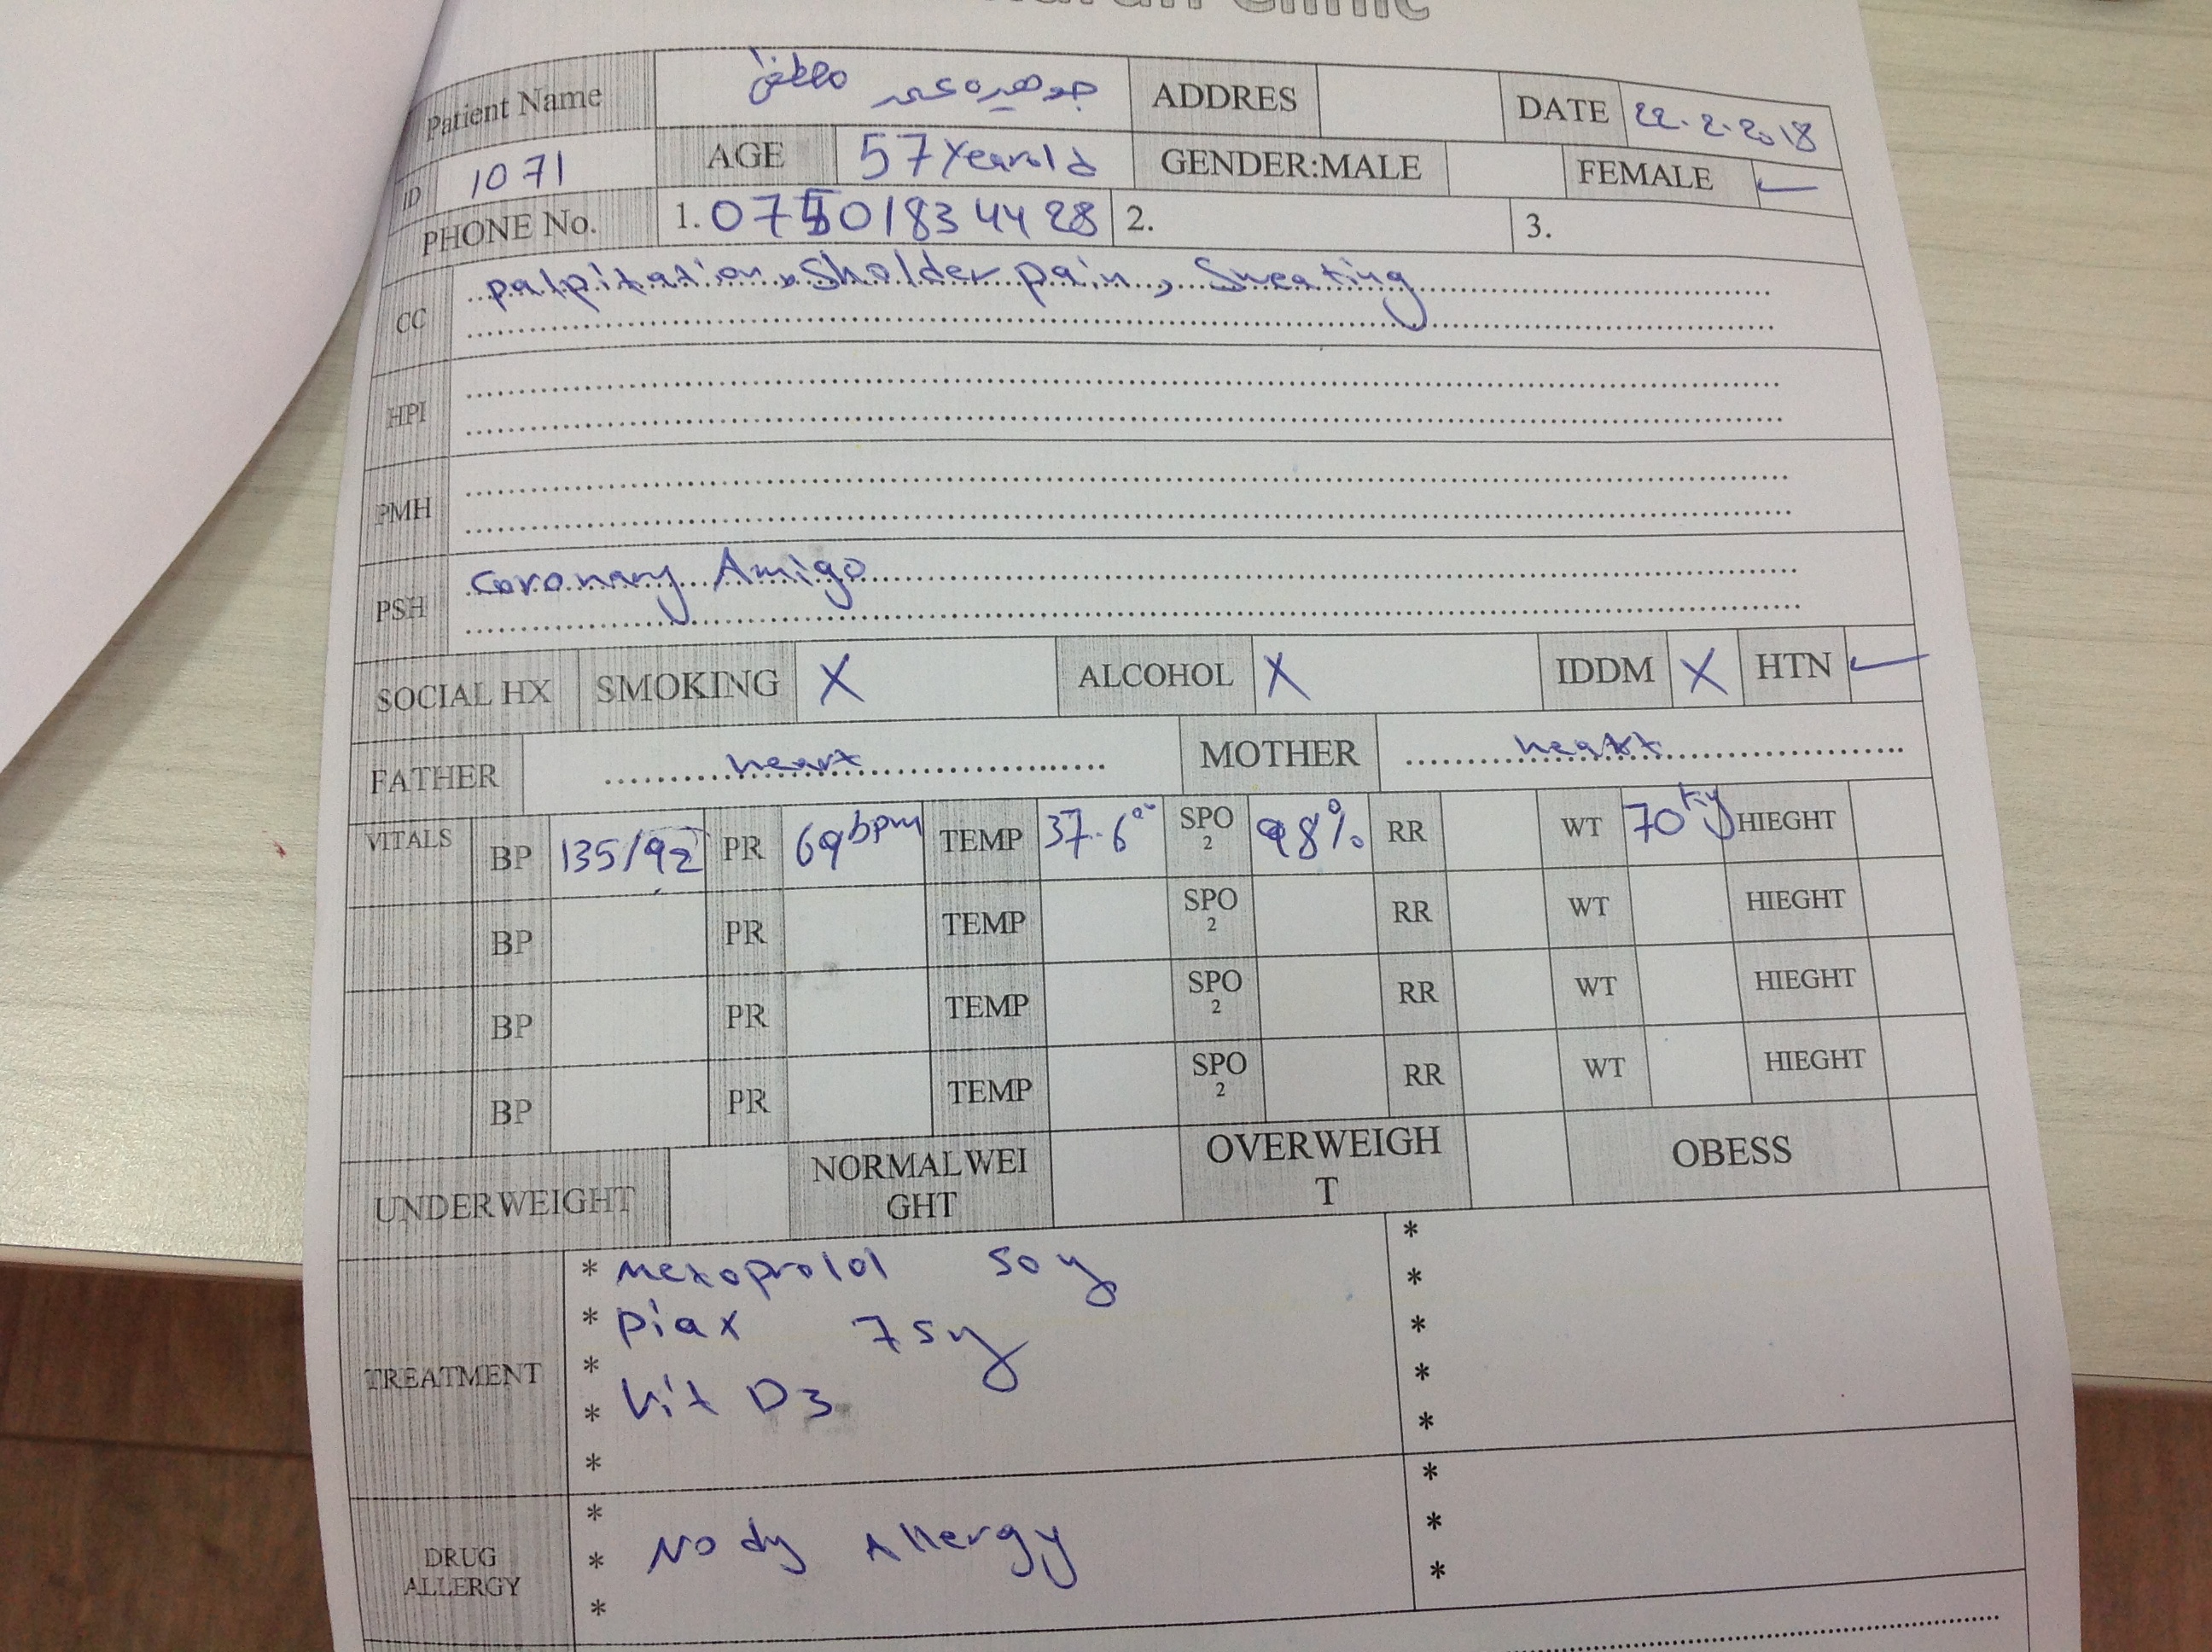 Clinic
Patient Name جوهيره عمر مصطفى ADDRES DATE 22.2.2018
ID 1071 AGE 57 Year old GENDER:MALE FEMALE ✓
PHONE No. 1. 07501834428 2. 3.
CC palpitation, Sholder pain, Sweating
HPI
PMH
PSH Coronary Amigo
SOCIAL HX SMOKING X ALCOHOL X IDDM X HTN ✓
FATHER heart MOTHER heart
VITALS BP 135/92 PR 69 bpm TEMP 37.6 SPO2 98% RR WT 70 kg HIEGHT
BP PR TEMP SPO2 RR WT HIEGHT
BP PR TEMP SPO2 RR WT HIEGHT
BP PR TEMP SPO2 RR WT HIEGHT
UNDERWEIGHT NORMALWEIGHT OVERWEIGHT OBESS
TREATMENT
* Metoprolol 50 *
* Piax 75 *
* *
* Vit D3 *
* *
DRUG ALLERGY
* *
* No Allergy *
* *